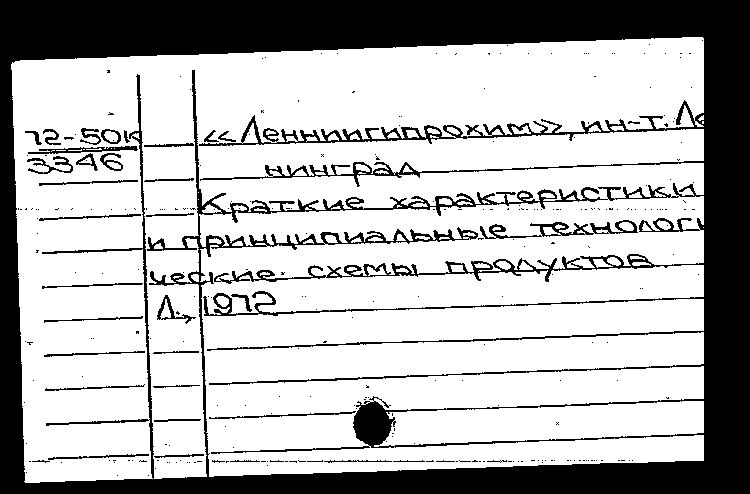 72-50к
3346
«Ленниигипрохим», ин-т. Ле
нинград
Краткие характеристики
и принципиальные технологи
ческие схемы продуктов
Л., 1972